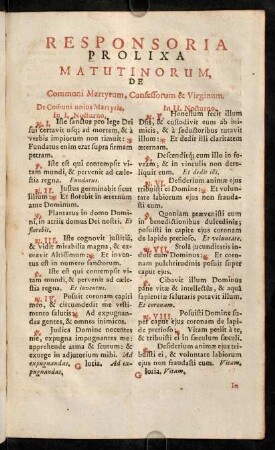 RESPONSORIA
PROLIXA
MATUTINORUM,
DE
Communi Martyrum, Confessorum & Virginum.
De Cõmuni unius Martyris,
In I. Nocturno.
℟. I. Iste sanctus pro lege Dei
sui certavit usq; ad mortem, & à
verbis impiorum non timuit:
Fundatus enim erat supra firmam
petram.
℣. Iste est qui contempsit vi-
tam mundi, & pervenit ad cæle-
stia regna. Fundatus.
℟. II. Justus germinabit sicut
lilium: Et florebit in æternum
ante Dominum.
℣. Plantatus in domo Domi-
ni, in atriis domus Dei nostri. Et
florebit.
℟. III. Iste cognovit justitiã,
& vidit mirabilia magna, & ex-
oravit Altissimum: Et inven-
tus est in numero sanctorum.
℣. Iste est qui contempsit vi-
tam mundi, & pervenit ad cæle-
stia regna. Et inventus.
℟. IV. Posuit coronam capiti
meo, & circumdedit me vesti-
mento salutis: Ad expugnan-
das gentes, & omnes inimicos.
℣. Judica Domine nocentes
me, expugna impugnantes me:
apprehende arma & scutum: &
exurge in adjutorium mihi. Ad
expugnandas. Gloria. Ad ex-
pugnandas.
In II. Nocturno.
Honestum fecit illum
Dñs, & custodivit eum ab ini-
micis, & à seductoribus tutavit
illum: Et dedit illi claritatem
æternam.
Descenditq; cum illo in fo-
veam; & in vinculis non dere-
liquit eum. Et dedit illi.
℟. VI. Desiderium animæ ejus
tribuisti ei Domine: Et volun-
tate labiorum ejus non fraudasti
eum.
℣. Quoniam prævenisti eum
in benedictionibus dulcedinis;
posuisti in capite ejus coronam
de lapide precioso. Et voluntate.
℟. VII. Stolâ jucunditatis in-
duit eum Dominus: Et co-
ronam pulchritudinis posuit super
caput ejus.
℣. Cibavit illum Dominus
pane vitæ & intellectûs, & aquâ
sapientiæ salutaris potavit illum.
Et coronam.
℟. VIII. Posuisti Domine su-
per caput ejus coronam de lapi-
de precioso: Vitam petiit à te,
& tribuisti ei in sæculum sæculi.
℣. Desiderium animæ ejus tri-
buisti ei, & voluntate labiorum
ejus non fraudasti eum. Vitam.
Gloria. Vitam.
In